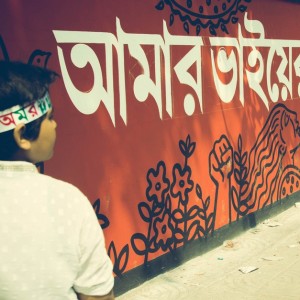 আমার ভাইয়ের
অমর